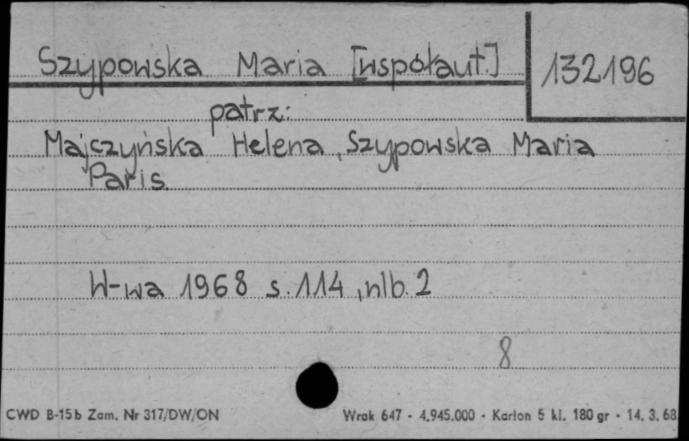 Szypowska Maria [współaut.]
132196
patrz:
Majszyńska Helena, Szypowska Maria
Paris.
W-wa 1968 s. 114, nlb. 2
8
CWD B-15b Zam. Nr 317/DW/ON
Wrak 647 - 4.945.000 - Karton 5 kl. 180 gr - 14. 3. 68